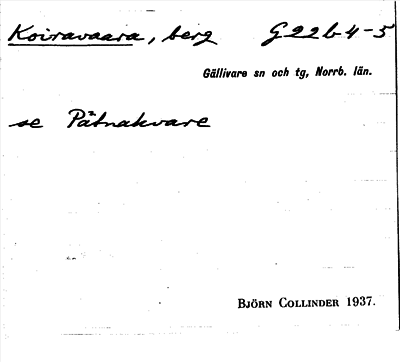 Koiravaara, berg G22b4-5
Gällivare sn och tg, Norrb. län.
se Pätnakvare
BJÖRN COLLINDER 1937.